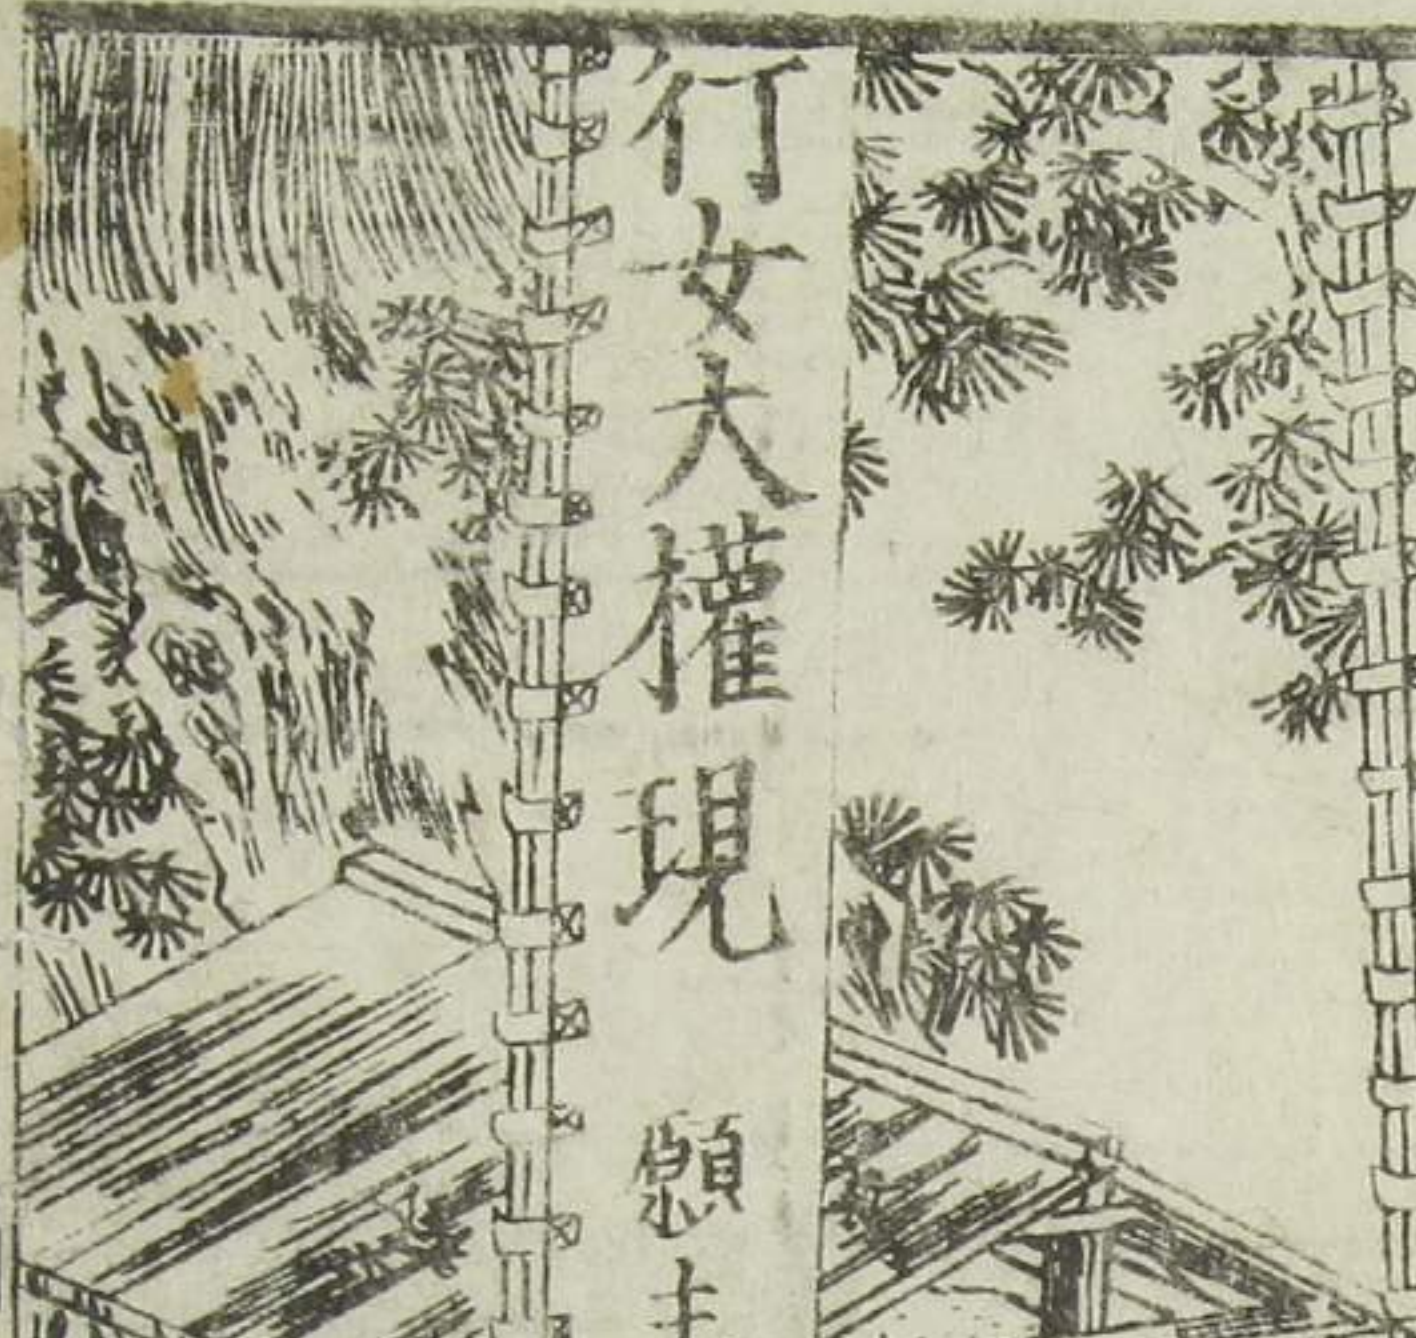 行女大權現　願主